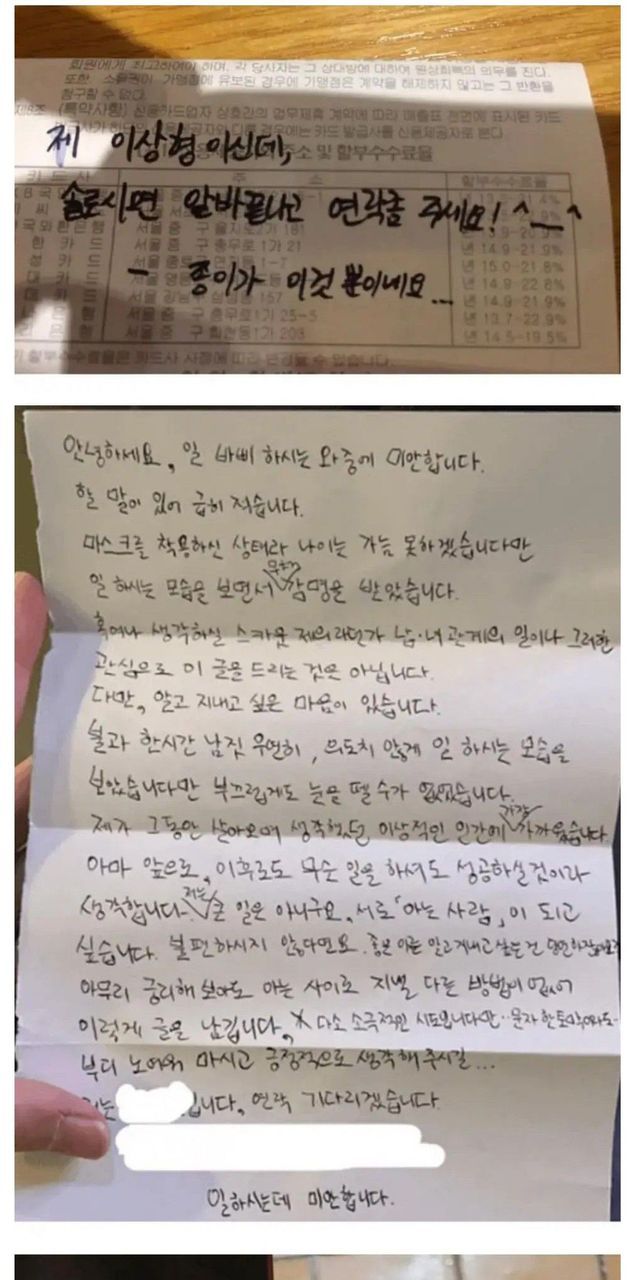 회원에게 최고하여야 하며, 각 당사자는 그 상대방에 대하여 원상회복의 의무를 진다.
또한, 소유권이 가맹점에 유보된 경우에 가맹점은 계약을 해제하지 않고는 그 반환을
청구할 수 없다.
제8조 (특약사항) 신용카드업자 상호간의 업무제휴 계약에 따라 매출표 전면에 표시된 카드
공자와 다를 경우에는 카드 발급사를 신용제공자로 본다.
제 이상형이신데,
주소 및 할부수수료율
카 드 사 주 소 할부수수료율
솔로시면 알바끝나고 연락좀 주세요! ^__^
서울 중 구 을지로2가 181
서울 중 구 충무로1가 21
년 14.9-21.9%
년 15.0-21.8%
- 종이가 이것 뿐이네요...
년 14.9-22.8%
157 년 14.9-21.9%
충무로1가 25-5 년 13.7-22.9%
서울 중 구 회현동1가 203 년 14.5-19.5%
할부수수료율은 카드사 사정에 따라 변경될 수 있습니다.
안녕하세요, 일 바삐 하시는 와중에 미안합니다.
할 말이 있어 급히 적습니다.
마스크를 착용하신 상태라 나이는 가늠 못하겠습니다만
일 하시는 모습을 보면서 무척 감명을 받았습니다.
혹여나 생각하실 스카웃 제의라던가 남·녀 관계의 일이나 그러한
관심으로 이 글을 드리는 것은 아닙니다.
다만, 알고 지내고 싶은 마음이 있습니다.
불과 한시간 남짓 우연히, 의도치 않게 일 하시는 모습을
보았습니다만 부끄럽게도 눈을 뗄 수가 없었습니다.
제가 그동안 살아오며 생각했던 이상적인 인간에 가장 가까웠습니다.
아마 앞으로, 이후로도 무슨 일을 하셔도 성공하실 것이라
생각합니다. 저는 큰 일은 아니구요. 서로 '아는 사람'이 되고
싶습니다. 불편하시지 않다면요.
아무리 궁리해 보아도 아는 사이로 지낼 다른 방법이 없어
이렇게 글을 남깁니다. X 다소 소극적인 시도입니다만.. 문자 한토막이라도..
부디 노여워 마시고 긍정적으로 생각해 주시길...
저는 입니다, 연락 기다리겠습니다.
일하시는데 미안합니다.